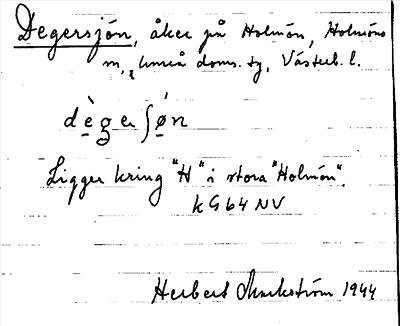 Degersjön, åker på Holmön, Holmöns
sn, Umeå doms. tg, Västerb. l.
dè̱ge̱r ʃǿ̱n
Ligger kring "H" i stora "Holmön".
k G 64 NV
Herbert Markström 1944